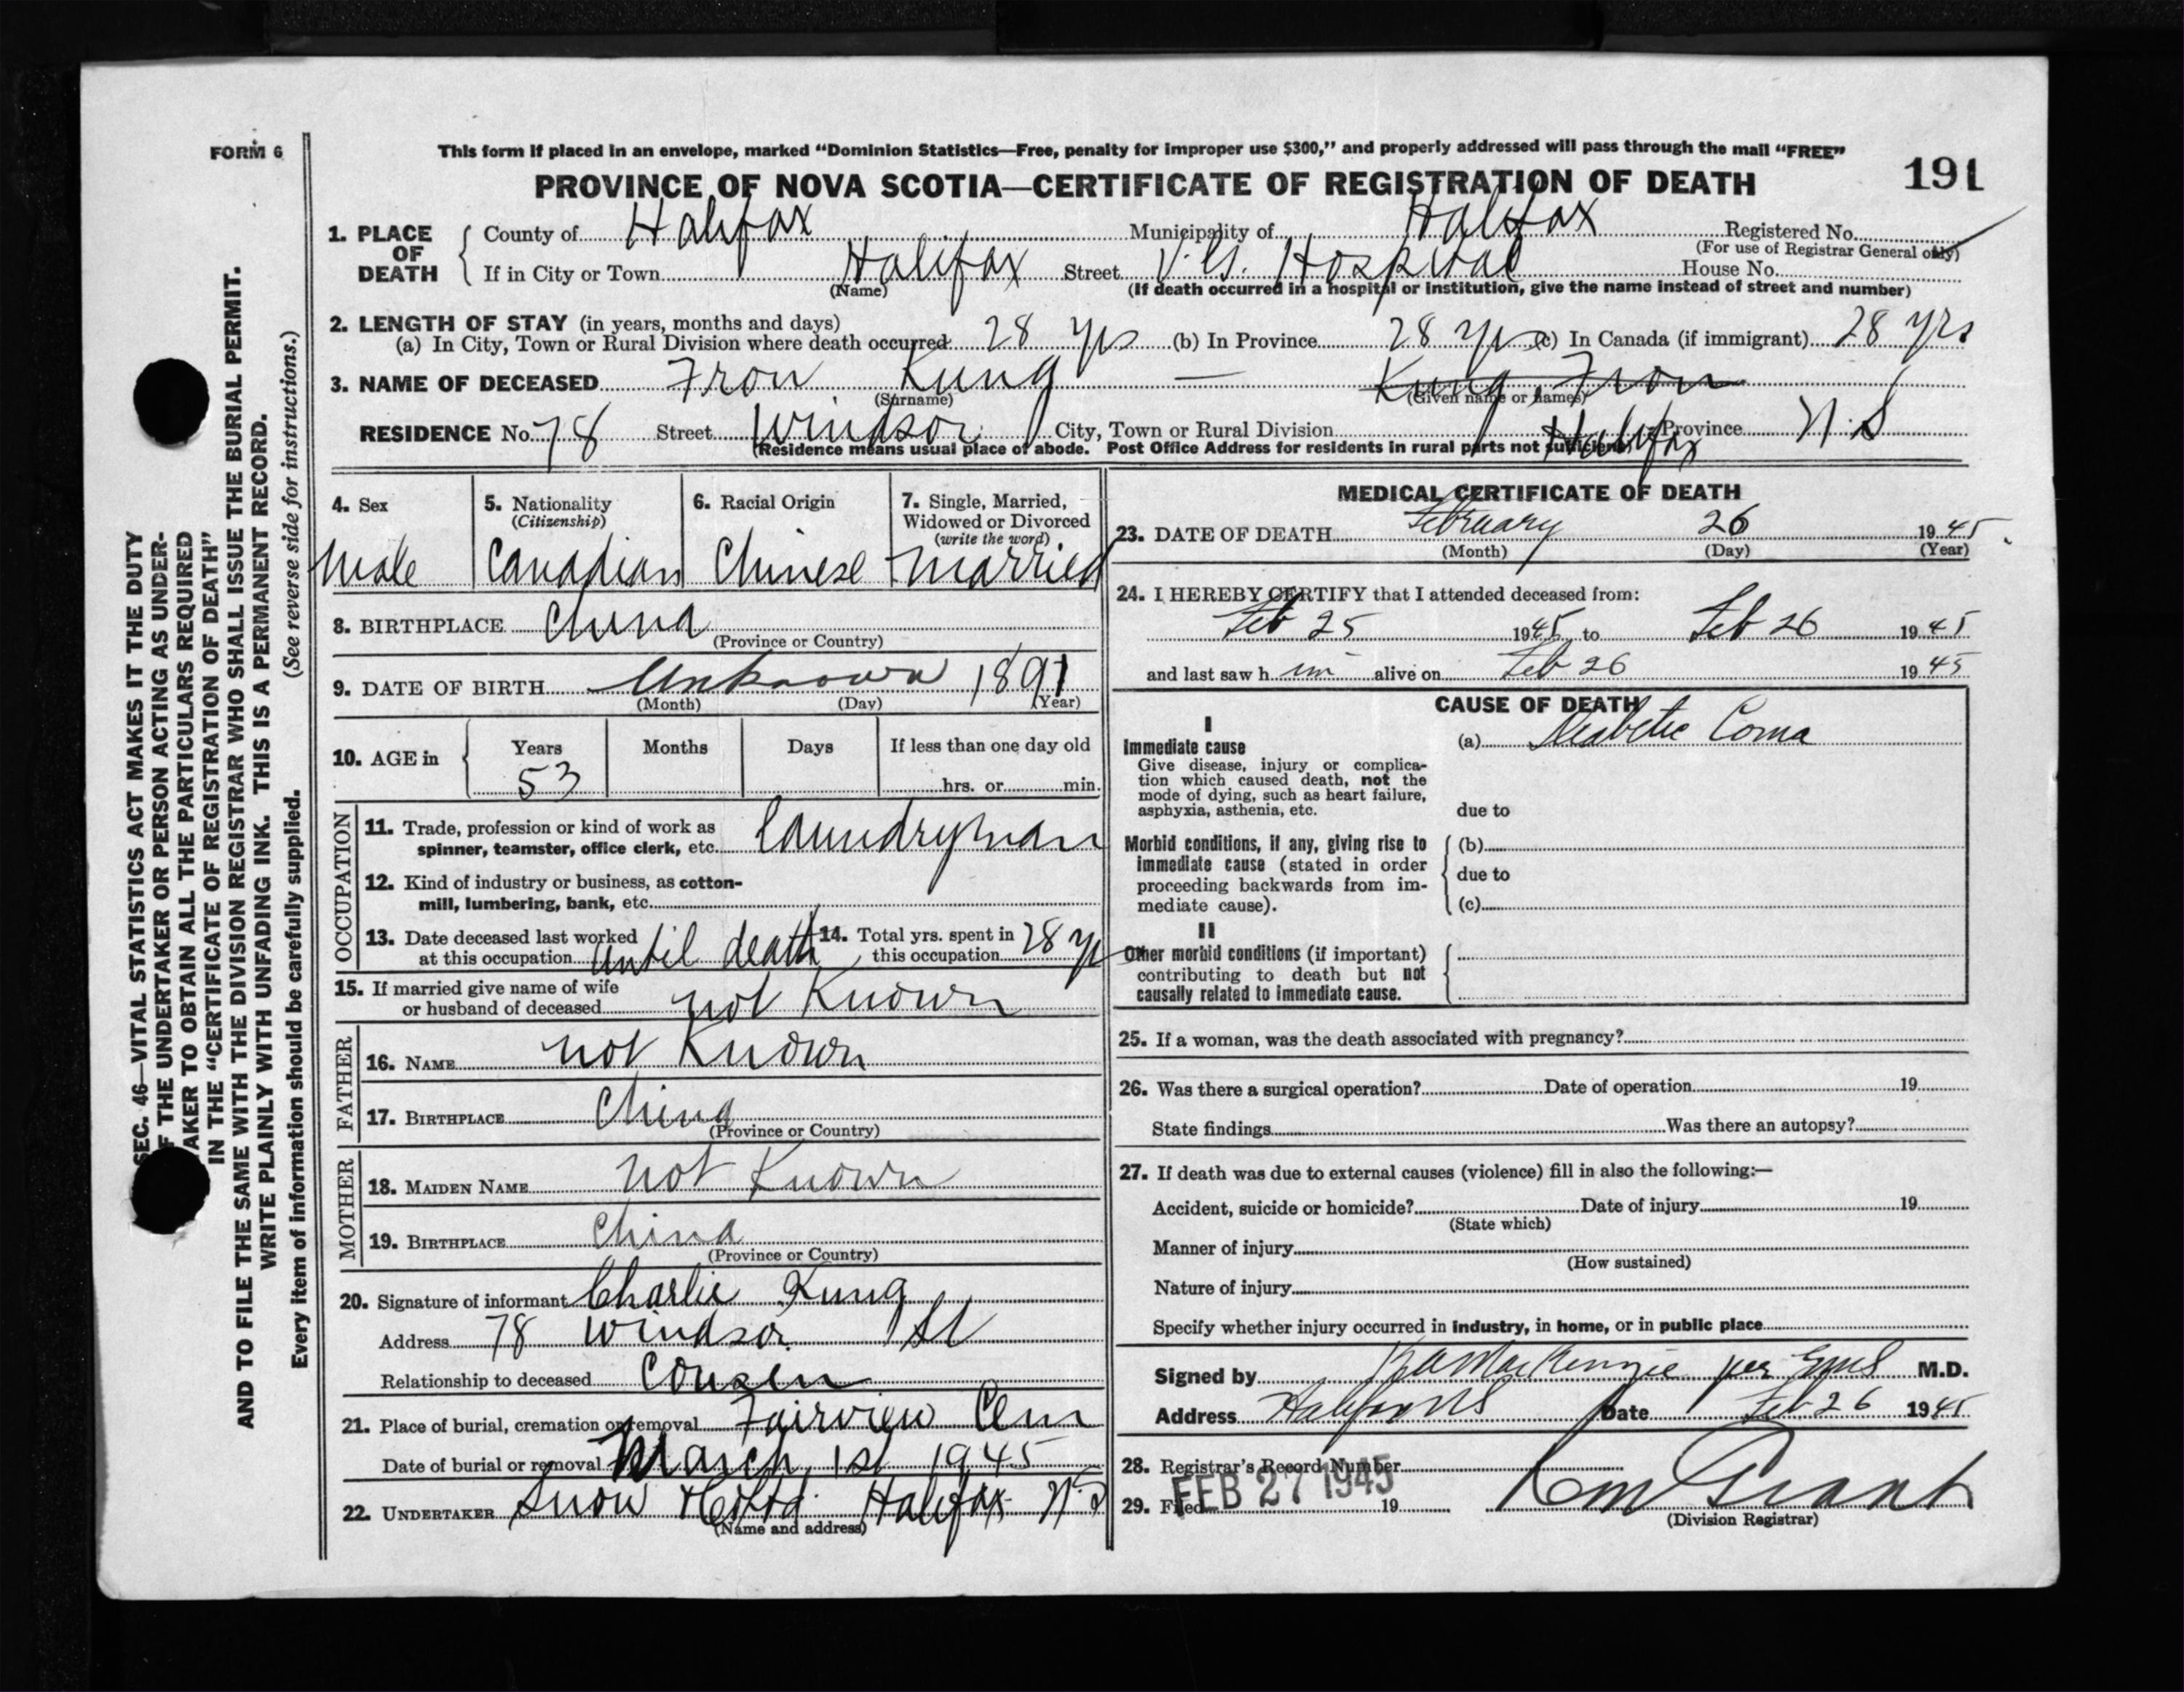 FORM 6
This form if placed in an envelope, marked “Dominion Statistics—Free, penalty for improper use $300,” and properly addressed will pass through the mail “FREE”
PROVINCE OF NOVA SCOTIA—CERTIFICATE OF REGISTRATION OF DEATH
191
1. PLACE OF DEATH
County of Halifax Municipality of Halifax Registered No.
(For use of Registrar General only)
If in City or Town Halifax Street V.G. Hospital House No.
(Name) (If death occurred in a hospital or institution, give the name instead of street and number)
2. LENGTH OF STAY (in years, months and days)
(a) In City, Town or Rural Division where death occurred 28 yrs (b) In Province 28 yrs (c) In Canada (if immigrant) 28 yrs
3. NAME OF DECEASED Fron Kung — Kung, Fron
(Surname) (Given name or names)
RESIDENCE No. 78 Street Windsor City, Town or Rural Division Halifax Province N S
(Residence means usual place of abode. Post Office Address for residents in rural parts not sufficient)
4. Sex
Male
5. Nationality
(Citizenship)
Canadian
6. Racial Origin
Chinese
7. Single, Married,
Widowed or Divorced
(write the word)
Married
8. BIRTHPLACE China
(Province or Country)
9. DATE OF BIRTH Unknown 1891
(Month) (Day) (Year)
10. AGE in
Years Months Days If less than one day old
53 hrs. or min.
OCCUPATION
11. Trade, profession or kind of work as
spinner, teamster, office clerk, etc. Laundryman
12. Kind of industry or business, as cotton-
mill, lumbering, bank, etc.
13. Date deceased last worked
at this occupation until death
14. Total yrs. spent in
this occupation 28 yr
15. If married give name of wife
or husband of deceased not Known
FATHER
16. NAME not Known
17. BIRTHPLACE China
(Province or Country)
MOTHER
18. MAIDEN NAME not Known
19. BIRTHPLACE China
(Province or Country)
20. Signature of informant Charlie Kung
Address 78 Windsor St
Relationship to deceased Cousin
21. Place of burial, cremation or removal Fairview Cem
Date of burial or removal March 1st 1945
22. UNDERTAKER Snow & Co Ltd. Halifax N.S
(Name and address)
MEDICAL CERTIFICATE OF DEATH
23. DATE OF DEATH February 26 1945
(Month) (Day) (Year)
24. I HEREBY CERTIFY that I attended deceased from:
Feb 25 1945 to Feb 26 1945
and last saw h im alive on Feb 26 1945
CAUSE OF DEATH
I
Immediate cause
Give disease, injury or complica-
tion which caused death, not the
mode of dying, such as heart failure,
asphyxia, asthenia, etc.
(a) Diabetic Coma
due to
Morbid conditions, if any, giving rise to
immediate cause (stated in order
proceeding backwards from im-
mediate cause).
(b)
due to
(c)
II
Other morbid conditions (if important)
contributing to death but not
causally related to immediate cause.
25. If a woman, was the death associated with pregnancy?
26. Was there a surgical operation? Date of operation 19
State findings Was there an autopsy?
27. If death was due to external causes (violence) fill in also the following:—
Accident, suicide or homicide? Date of injury 19
(State which)
Manner of injury
(How sustained)
Nature of injury
Specify whether injury occurred in industry, in home, or in public place
Signed by MacKenzie per M.D.
Address Halifax NS Date Feb 26 1945
28. Registrar's Record Number
29. Filed FEB 27 1945 19 Grant
(Division Registrar)
SEC. 46—VITAL STATISTICS ACT MAKES IT THE DUTY
F THE UNDERTAKER OR PERSON ACTING AS UNDER-
AKER TO OBTAIN ALL THE PARTICULARS REQUIRED
IN THE “CERTIFICATE OF REGISTRATION OF DEATH”
AND TO FILE THE SAME WITH THE DIVISION REGISTRAR WHO SHALL ISSUE THE BURIAL PERMIT.
WRITE PLAINLY WITH UNFADING INK. THIS IS A PERMANENT RECORD.
Every item of information should be carefully supplied. (See reverse side for instructions.)